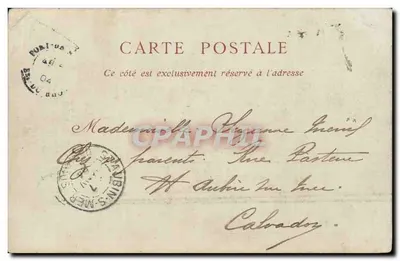 CARTE POSTALE
Ce côté est exclusivement réservé à l'adresse
Mademoiselle Suzanne
Chez ses parents Rue Pasteur
St Aubin sur mer
Calvados
ST AUBIN-S-MER
04
CPAPHIL